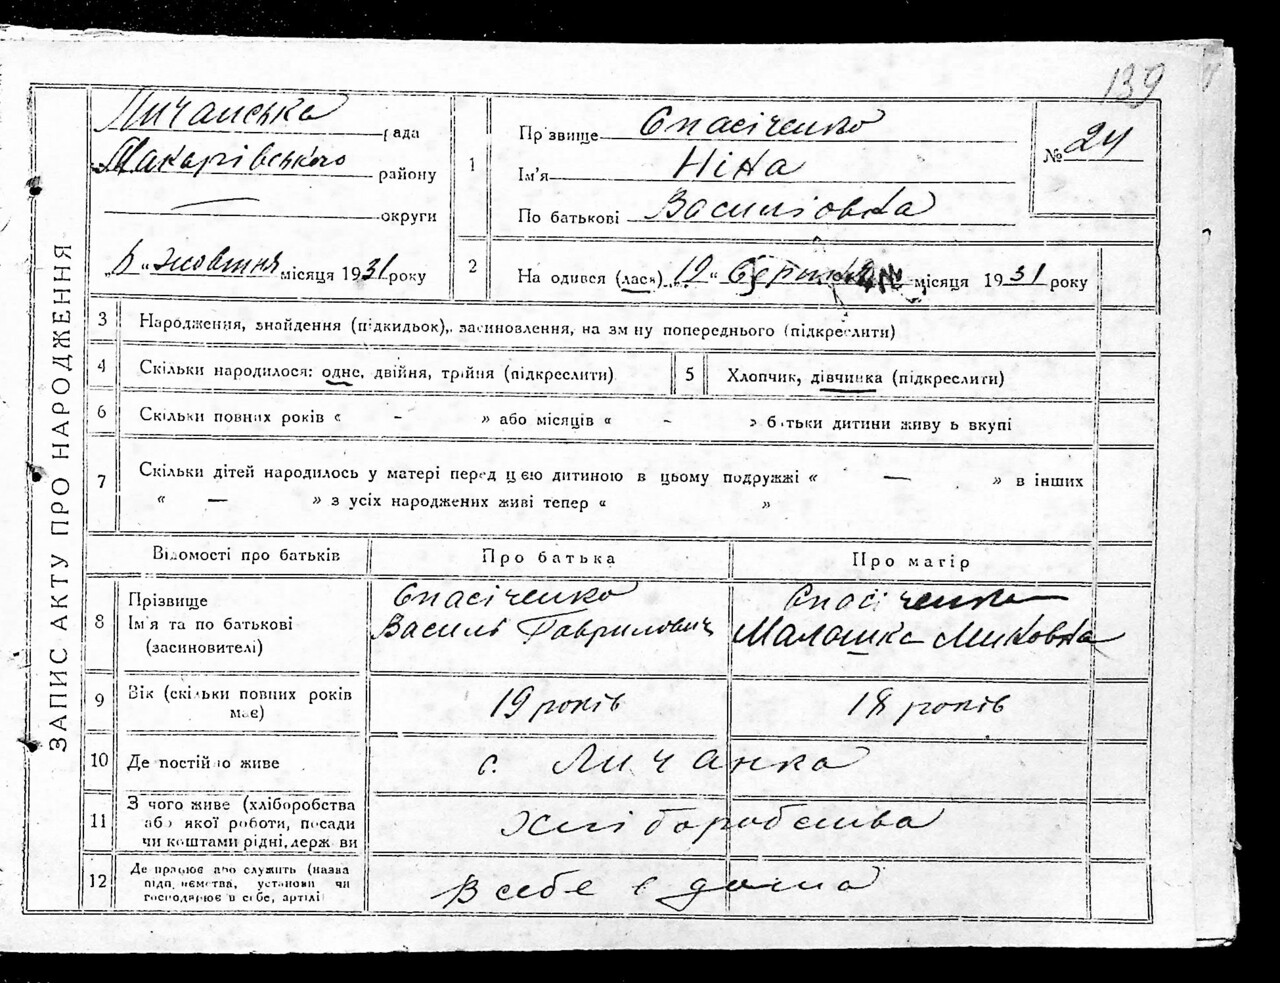 139
ЗАПИС АКТУ ПРО НАРОДЖЕННЯ
Личанська рада
Макарівського району
округи
„6“ жовтня місяця 1931 року
1 Прізвище Спасіченко
Ім'я Ніна
По батькові Василіовна
№ 24
2 На одився (лася) „19“ Серпня місяця 1931 року
3 Народження, знайдення (підкидьок), засиновлення, на зм ну попереднього (підкреслити)
4 Скільки народилося: одне, двійня, трійня (підкреслити)
5 Хлопчик, дівчинка (підкреслити)
6 Скільки повних років « - » або місяців « - » батьки дитини живу ь вкупі
7 Скільки дітей народилось у матері перед цією дитиною в цьому подружжі « — » в інших
« — » з усіх народжених живі тепер « »
Відомості про батьків Про батька Про матір
8 Прізвище Ім'я та по батькові (засиновителі)
Спасіченко
Василь Гаврилович
Спасіченко
Малашка
9 Вік (скільки повних років має) 19 років 18 років
10 Де постійно живе с. Личанка
11 З чого живе (хліборобства
або якої роботи, посади
чи коштами рідні, держ ви
Хліборобства
12 Де працює або служить (назва
підп иємства, установи чи
господарює в себе, артілі
В себе дома